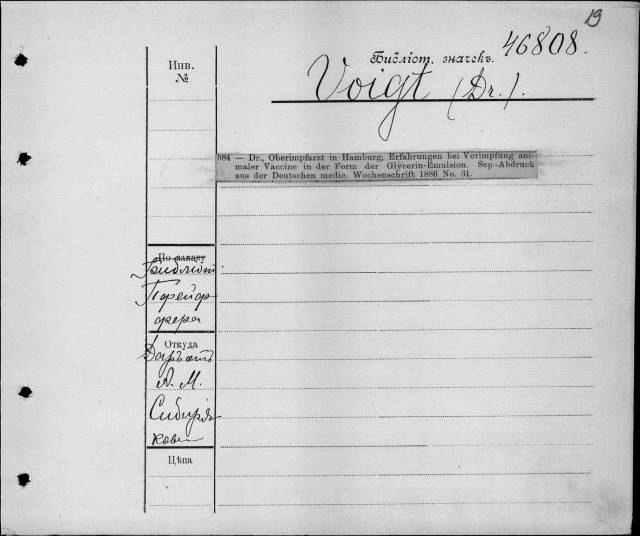 19
Библіот. значекъ. 46808.
Инв.
№
Voigt (Dr.).
584 — Dr., Oberimpfarzt in Hamburg, Erfahrungen bei Verimpfung ani-
maler Vaccine in der Form der Glycerin-Emulsion. Sep-Abdruck
aus der Deutschen medic. Wochenschrift 1886 No. 31.
По заказу
Библіот.
Пфейф-
фера
Откуда
Даръ отъ
А. М.
Сибиря-
кова
Цѣна